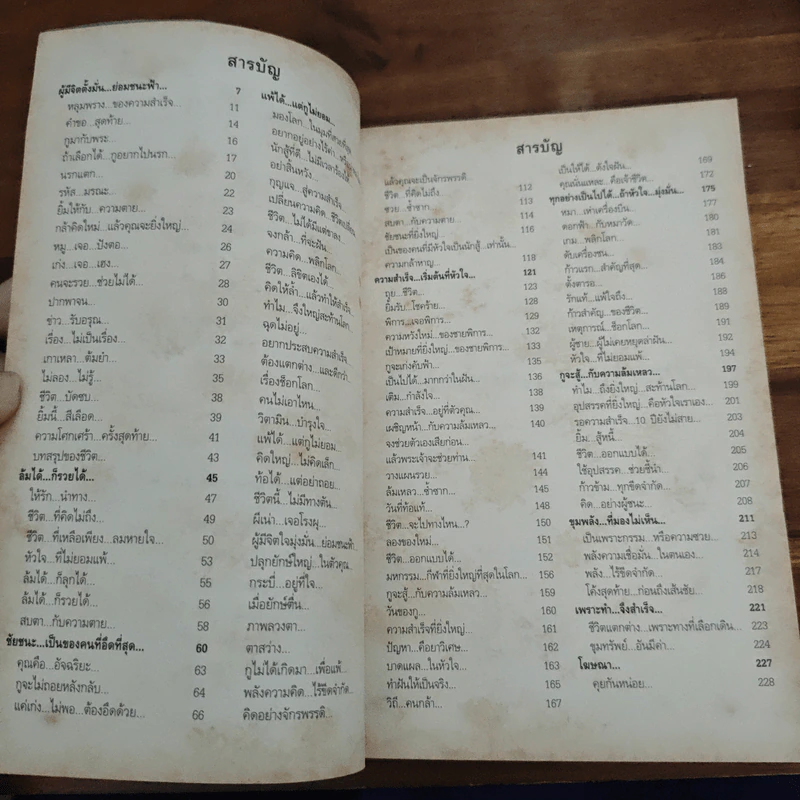 สารบัญ
ผู้มีจิตตั้งมั่น...ย่อมชนะฟ้า... 7
หลุมพราง...ของความสำเร็จ... 11
คำขอ...สุดท้าย... 14
กูมากับพระ... 16
ถ้าเลือกได้...กูอยากไปนรก... 17
นรกแตก... 20
รหัส...มรณะ... 22
ยิ้มให้กับ...ความตาย... 23
กล้าคิดใหม่...แล้วคุณจะยิ่งใหญ่... 24
หมู...เจอ...ปังตอ... 26
เก่ง...เจอ...เฮง... 27
คนจะรวย...ช่วยไม่ได้... 28
ปากพาจน... 30
ข่าว...รับอรุณ... 31
เรื่อง...ไม่เป็นเรื่อง... 32
เกาเหลา...ต้มยำ... 33
ไม่ลอง...ไม่รู้... 35
ชีวิต...บัดซบ... 38
ยิ้มนี้...สีเลือด... 39
ความโศกเศร้า...ครั้งสุดท้าย... 41
บทสรุปของชีวิต... 43
ล้มได้...ก็รวยได้... 45
ให้รัก...นำทาง... 47
ชีวิต...ที่คิดไม่ถึง... 49
ชีวิต...ที่เหลือเพียง...ลมหายใจ... 50
หัวใจ...ที่ไม่ยอมแพ้... 53
ล้มได้...ก็ลุกได้... 55
ล้มได้...ก็รวยได้... 56
สบตา...กับความตาย... 58
ชัยชนะ...เป็นของคนที่อึดที่สุด... 60
คุณคือ...อัจฉริยะ... 63
กูจะไม่ถอยหลังกลับ... 64
แค่เก่ง...ไม่พอ...ต้องอึดด้วย... 66
แพ้ได้...แต่กูไม่ยอม...
มองโลก...ในมุมที่
อยากอยู่อย่างไร้ค่า...
นักสู้ที่ดี...ไม่มีเวลา
อย่าสิ้นหวัง...
กุญแจ...สู่ความสำเร็จ...
เปลี่ยนความคิด...ชีวิตเปลี่ยน
ชีวิต...ไม่ได้มีแค่
จงกล้า...ที่จะฝัน...
ความคิด...พลิกโลก...
ชีวิต...ลิขิตเองได้...
คิดให้ล้ำ...แล้วทำให้สำเร็จ...
ทำไม...จึงใหญ่สะท้านโลก...
ฉุดไม่อยู่...
อยากประสบความสำเร็จ
ต้องแตกต่าง...และดีกว่า
เรื่องช็อกโลก...
คนไม่เอาไหน...
วิตามิน...บำรุงใจ...
แพ้ได้...แต่กูไม่ยอม
คิดใหญ่...ไม่คิดเล็ก...
ท้อได้...แต่อย่าถอย...
ชีวิตนี้...ไม่มีทางตัน...
ผีเน่า...เจอโรงผุ...
ผู้มีจิตใจมุ่งมั่น...ย่อมชนะฟ้า
ปลุกยักษ์ใหญ่...ในตัวคุณ...
กระบี่...อยู่ที่ใจ...
เมื่อยักษ์ตื่น...
ภาพลวงตา...
ตาสว่าง...
กูไม่ได้เกิดมา...เพื่อแพ้...
พลังความคิด...ไร้ขีดจำกัด...
คิดอย่างจักรพรรดิ...
สารบัญ
แล้วคุณจะเป็นจักรพรรดิ
ชีวิต...ที่คิดไม่ถึง... 112
ซวย...ซ้ำซาก... 113
สบตา...กับความตาย... 114
ชัยชนะที่ยิ่งใหญ่... 116
เป็นของคนที่มีหัวใจเป็นนักสู้...เท่านั้น...
ความกล้าหาญ... 118
ความสำเร็จ...เริ่มต้นที่หัวใจ... 121
ถุย...ชีวิต... 123
ยิ้มรับ...โชคร้าย... 128
พิการ...เจอพิการ... 129
ความหวังใหม่...ของชายพิการ... 132
เป้าหมายที่ยิ่งใหญ่...ของชายพิการ... 133
กูจะเก่งคับฟ้า... 135
เป็นไปได้...มากกว่าในฝัน... 136
เติม...กำลังใจ... 138
ความสำเร็จ...อยู่ที่ตัวคุณ... 139
เผชิญหน้า...กับความล้มเหลว... 140
จงช่วยตัวเองเสียก่อน...
แล้วพระเจ้าจะช่วยท่าน... 141
วางแผนรวย... 144
ล้มเหลว...ซ้ำซาก... 145
วันที่ท้อแท้... 148
ชีวิต...จะไปทางไหน...? 150
ลองของใหม่... 151
ชีวิต...ออกแบบได้... 152
มหกรรม...กีฬาที่ยิ่งใหญ่ที่สุดในโลก... 156
กูจะสู้...กับความล้มเหลว... 159
วันของกู... 160
ความสำเร็จที่ยิ่งใหญ่... 161
ปัญหา...คือยาวิเศษ... 162
บาดแผล...ในหัวใจ... 163
ทำฝันให้เป็นจริง... 165
วิถี...คนกล้า... 167
เป็นให้ได้...ดังใจฝัน... 169
คุณนั่นแหละ...คือเจ้าชีวิต... 172
ทุกอย่างเป็นไปได้...ถ้าหัวใจ...มุ่งมั่น... 175
หมา...เห่าเครื่องบิน... 177
ดอกฟ้า...กับหมาวัด... 180
เกม...พลิกโลก... 181
ดับเครื่องชน... 183
ก้าวแรก...สำคัญที่สุด... 184
ตั้งตารอ... 186
รักแท้...แพ้ใจถึง... 187
ก้าวสำคัญ...ของชีวิต... 188
เหตุการณ์...ช็อกโลก... 189
ผู้ชาย...ผู้ไม่เคยหยุดล่าฝัน... 191
หัวใจ...ที่ไม่ยอมแพ้... 192
194
กูจะสู้...กับความล้มเหลว... 197
ทำไม...ถึงยิ่งใหญ่...สะท้านโลก... 199
อุปสรรคที่ยิ่งใหญ่...คือหัวใจเราเอง... 201
รอความสำเร็จ...10 ปียังไม่สาย... 203
ยิ้ม...สู้หนี้... 204
ชีวิต...ออกแบบได้... 205
ใช้อุปสรรค...ช่วยชี้นำ... 206
ก้าวข้าม...ทุกขีดจำกัด... 207
คิด...อย่างผู้ชนะ... 208
ขุมพลัง...ที่มองไม่เห็น... 211
เป็นเพราะกรรม...หรือความซวย... 213
พลังความเชื่อมั่น...ในตนเอง... 214
พลัง...ไร้ขีดจำกัด... 217
โค้งสุดท้าย...ก่อนถึงเส้นชัย... 218
เพราะทำ...จึงสำเร็จ... 221
ชีวิตแตกต่าง...เพราะทางที่เลือกเดิน... 223
ขุมทรัพย์...อันมีค่า... 224
โฆษณา... 227
คุยกันหน่อย... 228